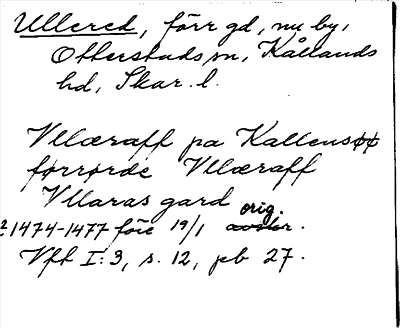 Ullered, förr gd, nu by,
Otterstads sn, Kållands
hd, Skar. l.
Vllæraff pa Kallensøø
førrørde Vllæraff
Vllaras gard
1474-1477 före 19/1 orig.
Vfh I:3, s. 12, pb 27.